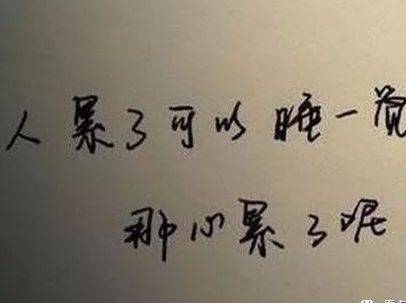 人累了可以睡一觉
那心累了呢